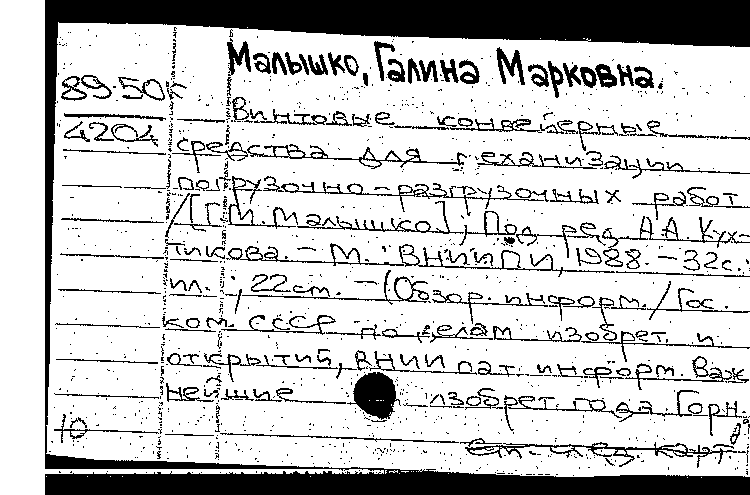 Малышко, Галина Марковна.
89-50к
4204
Винтовые конвейерные
средства для механизации
погрузочно-разгрузочных работ
/[Г.М. Малышко]; Под ред. А.А. Кух-
тикова. - М. : ВНИИПИ, 1988. - 32с. :
ил. ; 22 см. - (Обзор. информ. / Гос.
ком. СССР по делам изобрет. и
открытий, ВНИИ пат. информ. Важ
нейшие изобрет. года. Горн.
10 см. след. карт.